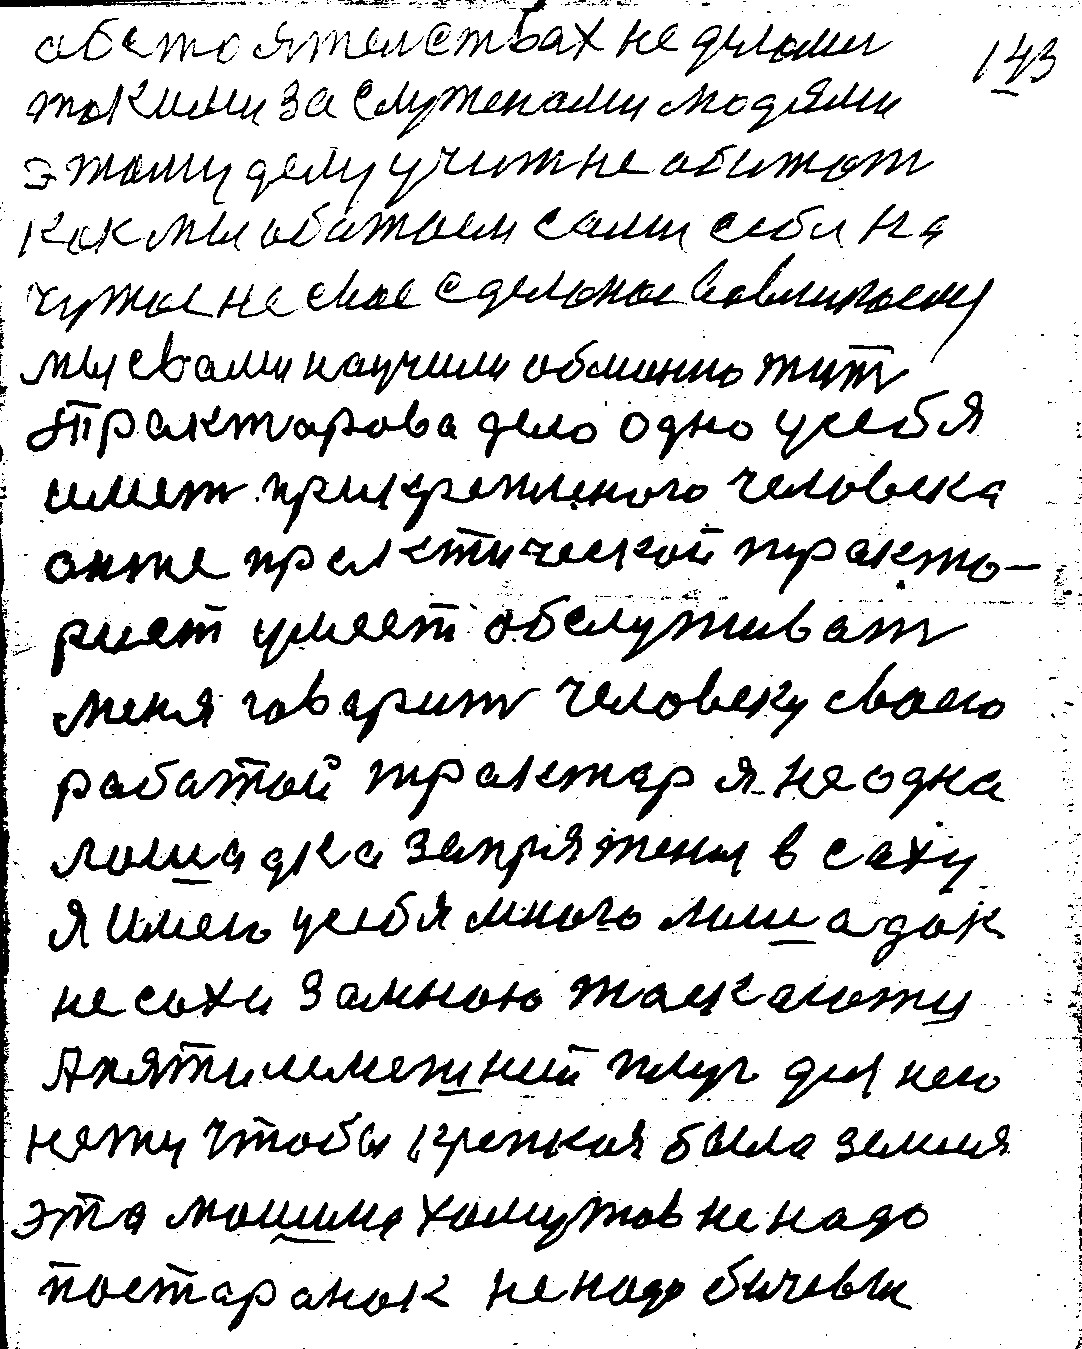 143
обстоятелствах не делами
такими заслуженами людями
этому делу учит не обижат
как мы обажаем сами себя на
чужое не свое сделоное
мы свами научили обманно жит
Трактарова дело одно усебя
имеет прикрепленого человека
онже практической тракто-
рист умеет обслуживат
меня говарит человеку своего
работой трактар я не одна
лошадка запряжены в саху
я имею усебя много лошадок
не сохи замною таскаюту
А пятилемешний плуг для него
нету чтобы крепкая была земля
эта машина хамутов не надо
постаранок не надо бичевы